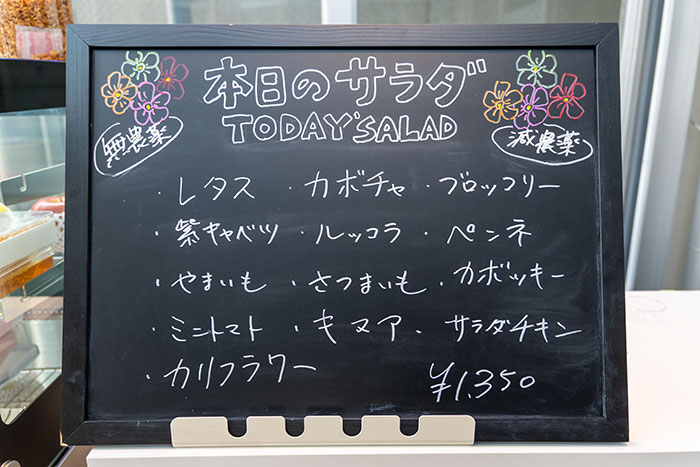 本日のサラダ
TODAY'SALAD
無農薬
減農薬
・レタス ・カボチャ ・ブロッコリー
・紫キャベツ ・ルッコラ ・ペンネ
・やまいも ・さつまいも ・カボッキー
・ミニトマト ・キヌア ・サラダチキン
・カリフラワー ¥1,350